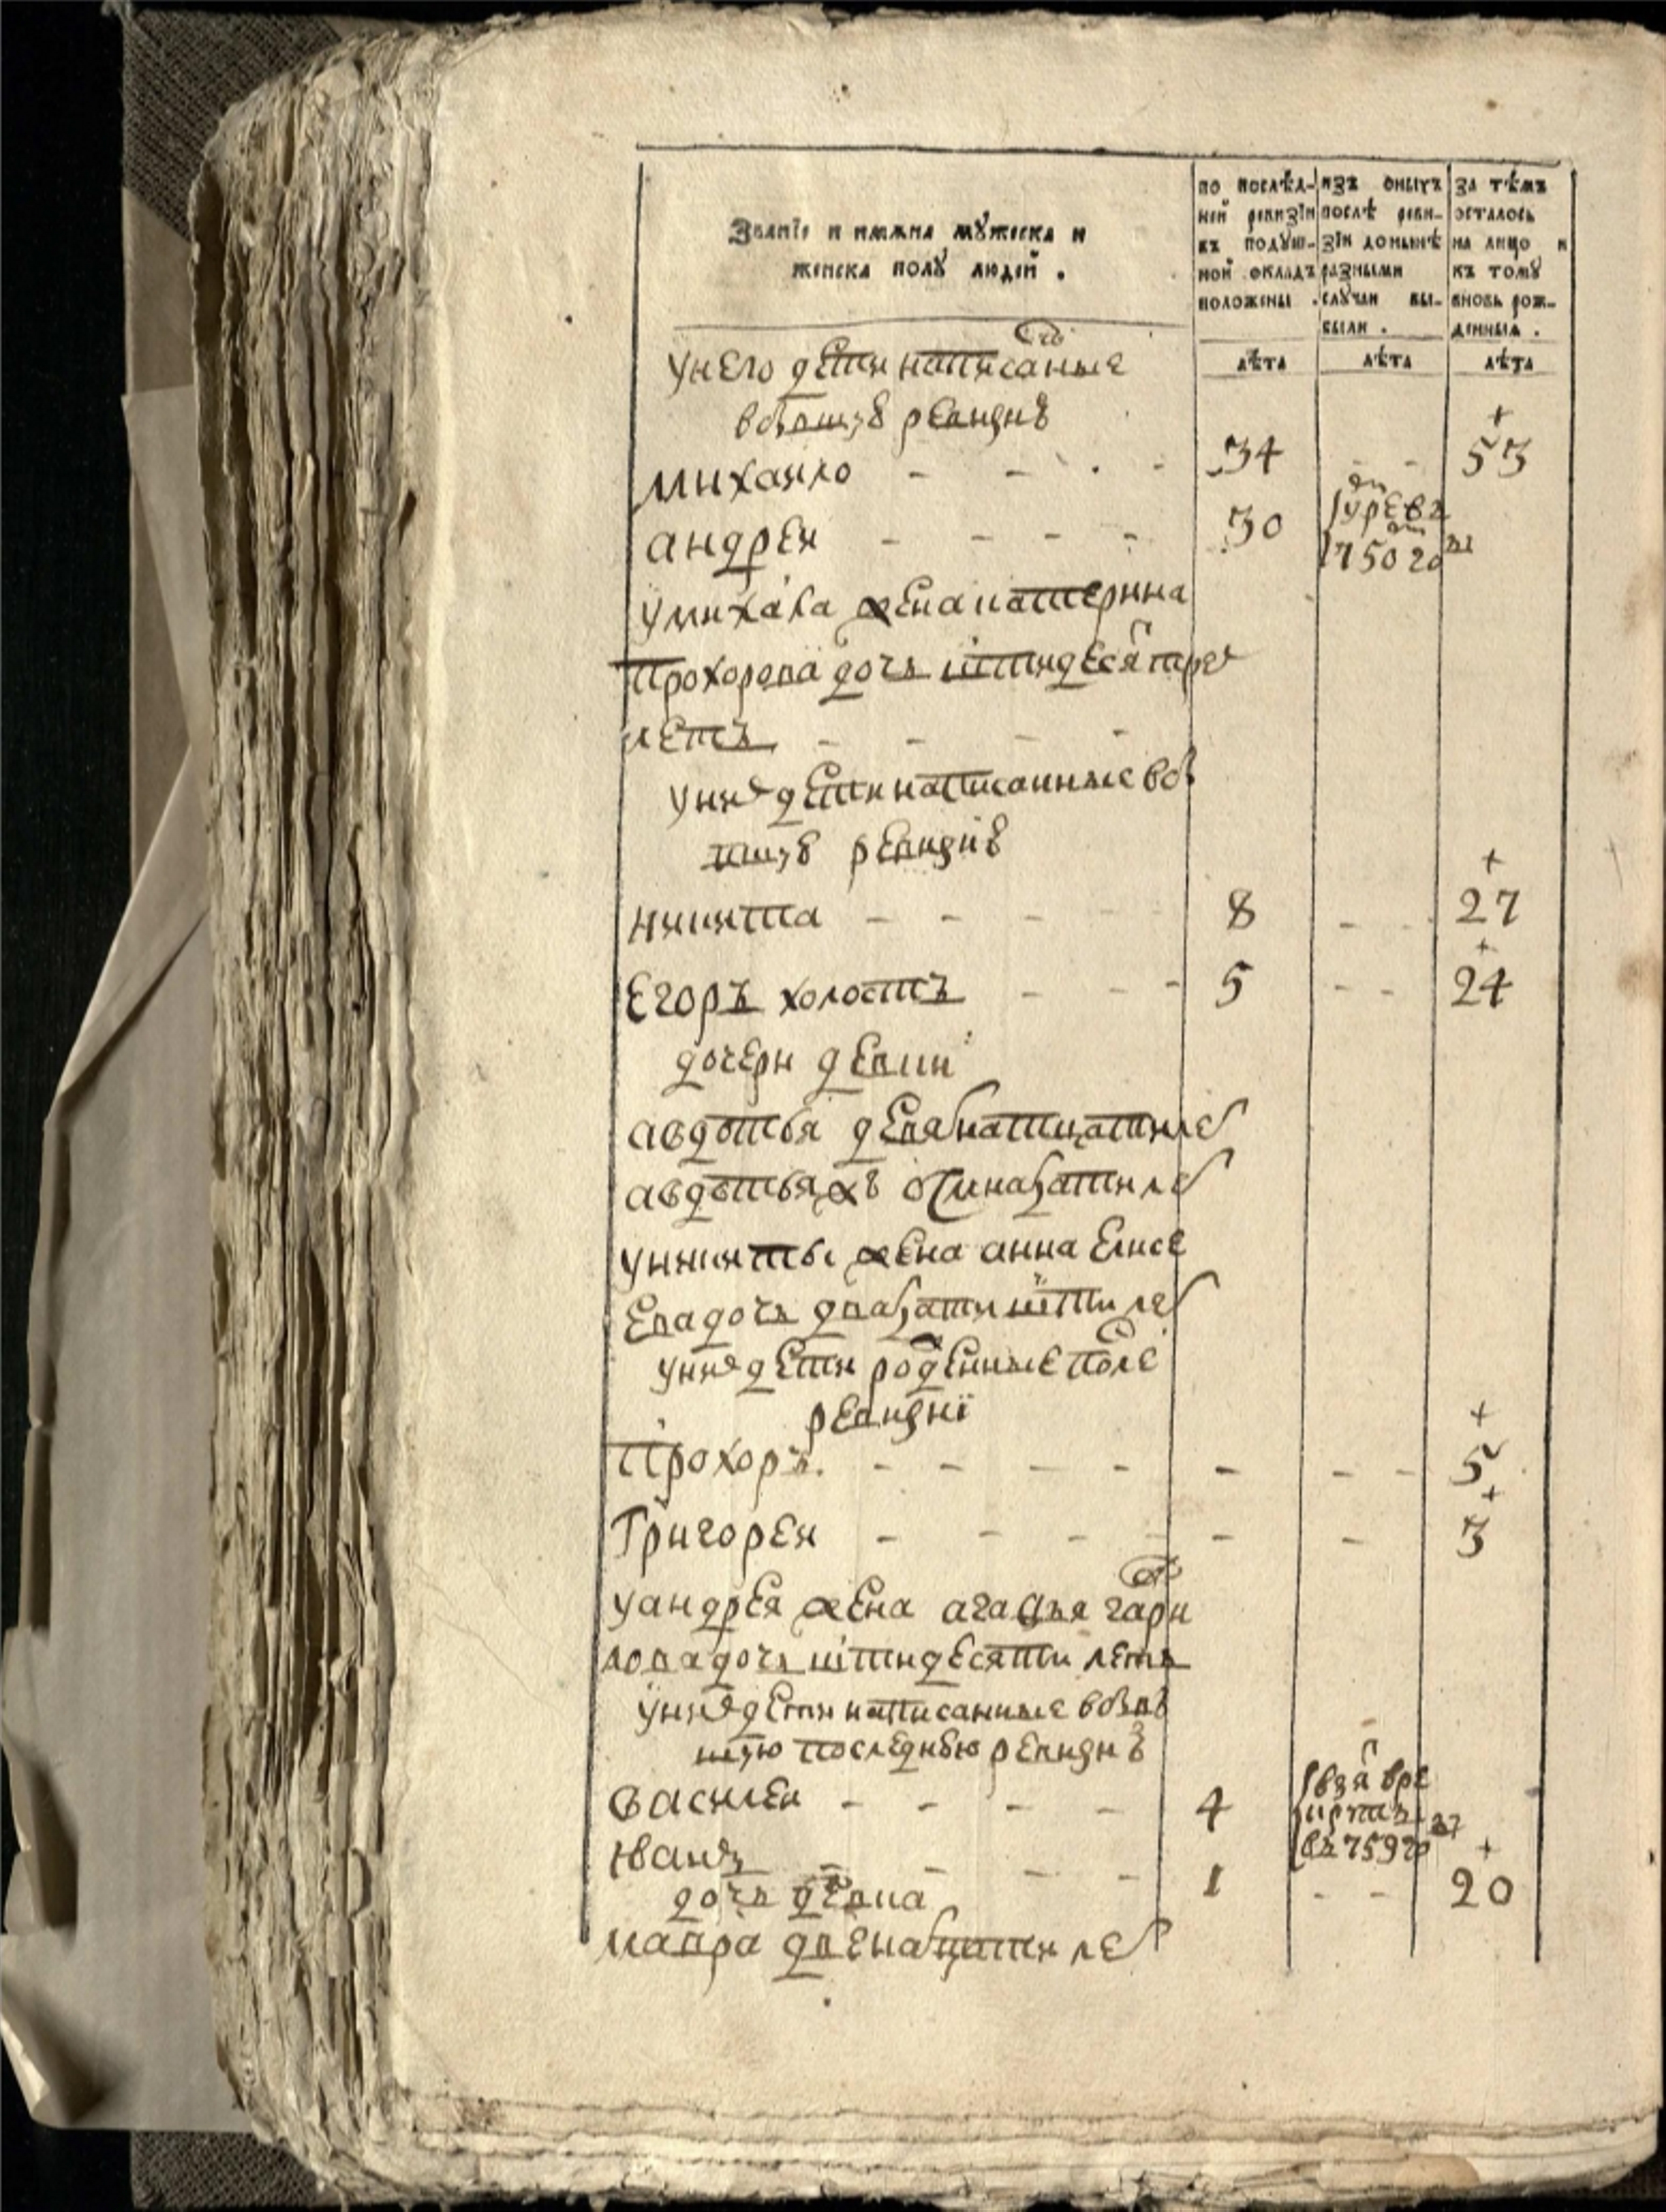 Званїе и имѧна мꙋжеска и
женска полꙋ людей .
по послѣд-
ней ревизїи
въ подꙋш-
ной окладъ
положены .
изъ оныхъ
послѣ реви-
зїи донынѣ
разными
слꙋчаи вы-
были .
за тѣмъ
осталось
на лицо и
къ томꙋ
вновь рож-
денныѧ .
лѣта
лѣта
лѣта
у него дети написаные
ревизию
михайло - - - - 34 - - 53
андрей - - - - 30
1750 го
у михаила жена катерина
прохорова дочь
летъ - - - -
у них дети написанные
ревизию
никита - - - - - 8 - - 27
егоръ холостъ - - - 5 - - 24
дочери девки
авдотья девятнатцати лет
авдотья ж
у никиты жена анна елисе
ева дочь двацати шти лет
у них дети рожденные после
ревизиї
прохоръ - - - - - - - 5
григорей - - - - - - 3
у андрея жена агафья гаври
лова дочь пятидесяти летъ
у них дети написанные
шую последнюю ревизию
василей - - - - 4
взят в ре
круты
въ 759 го
иванъ - - - - 1 - - 20
дочь девка
мавра двенатцати лет